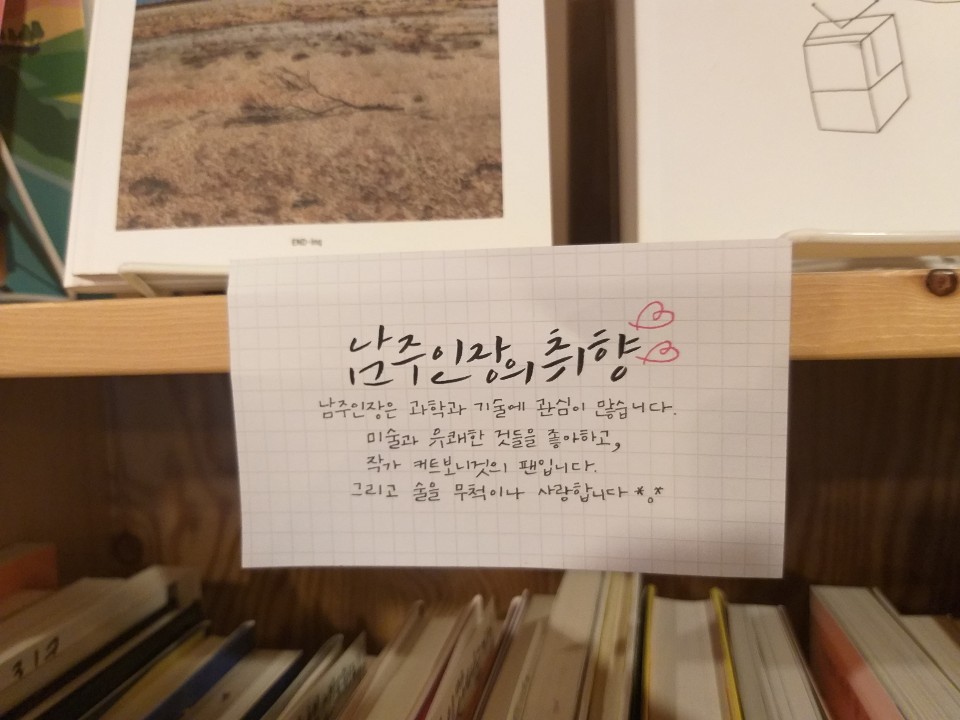 END-ing
남주인장의 취향
남주인장은 과학과 기술에 관심이 많습니다.
미술과 유쾌한 것들을 좋아하고,
작가 커트보니것의 팬입니다.
그리고 술을 무척이나 사랑합니다 *。*